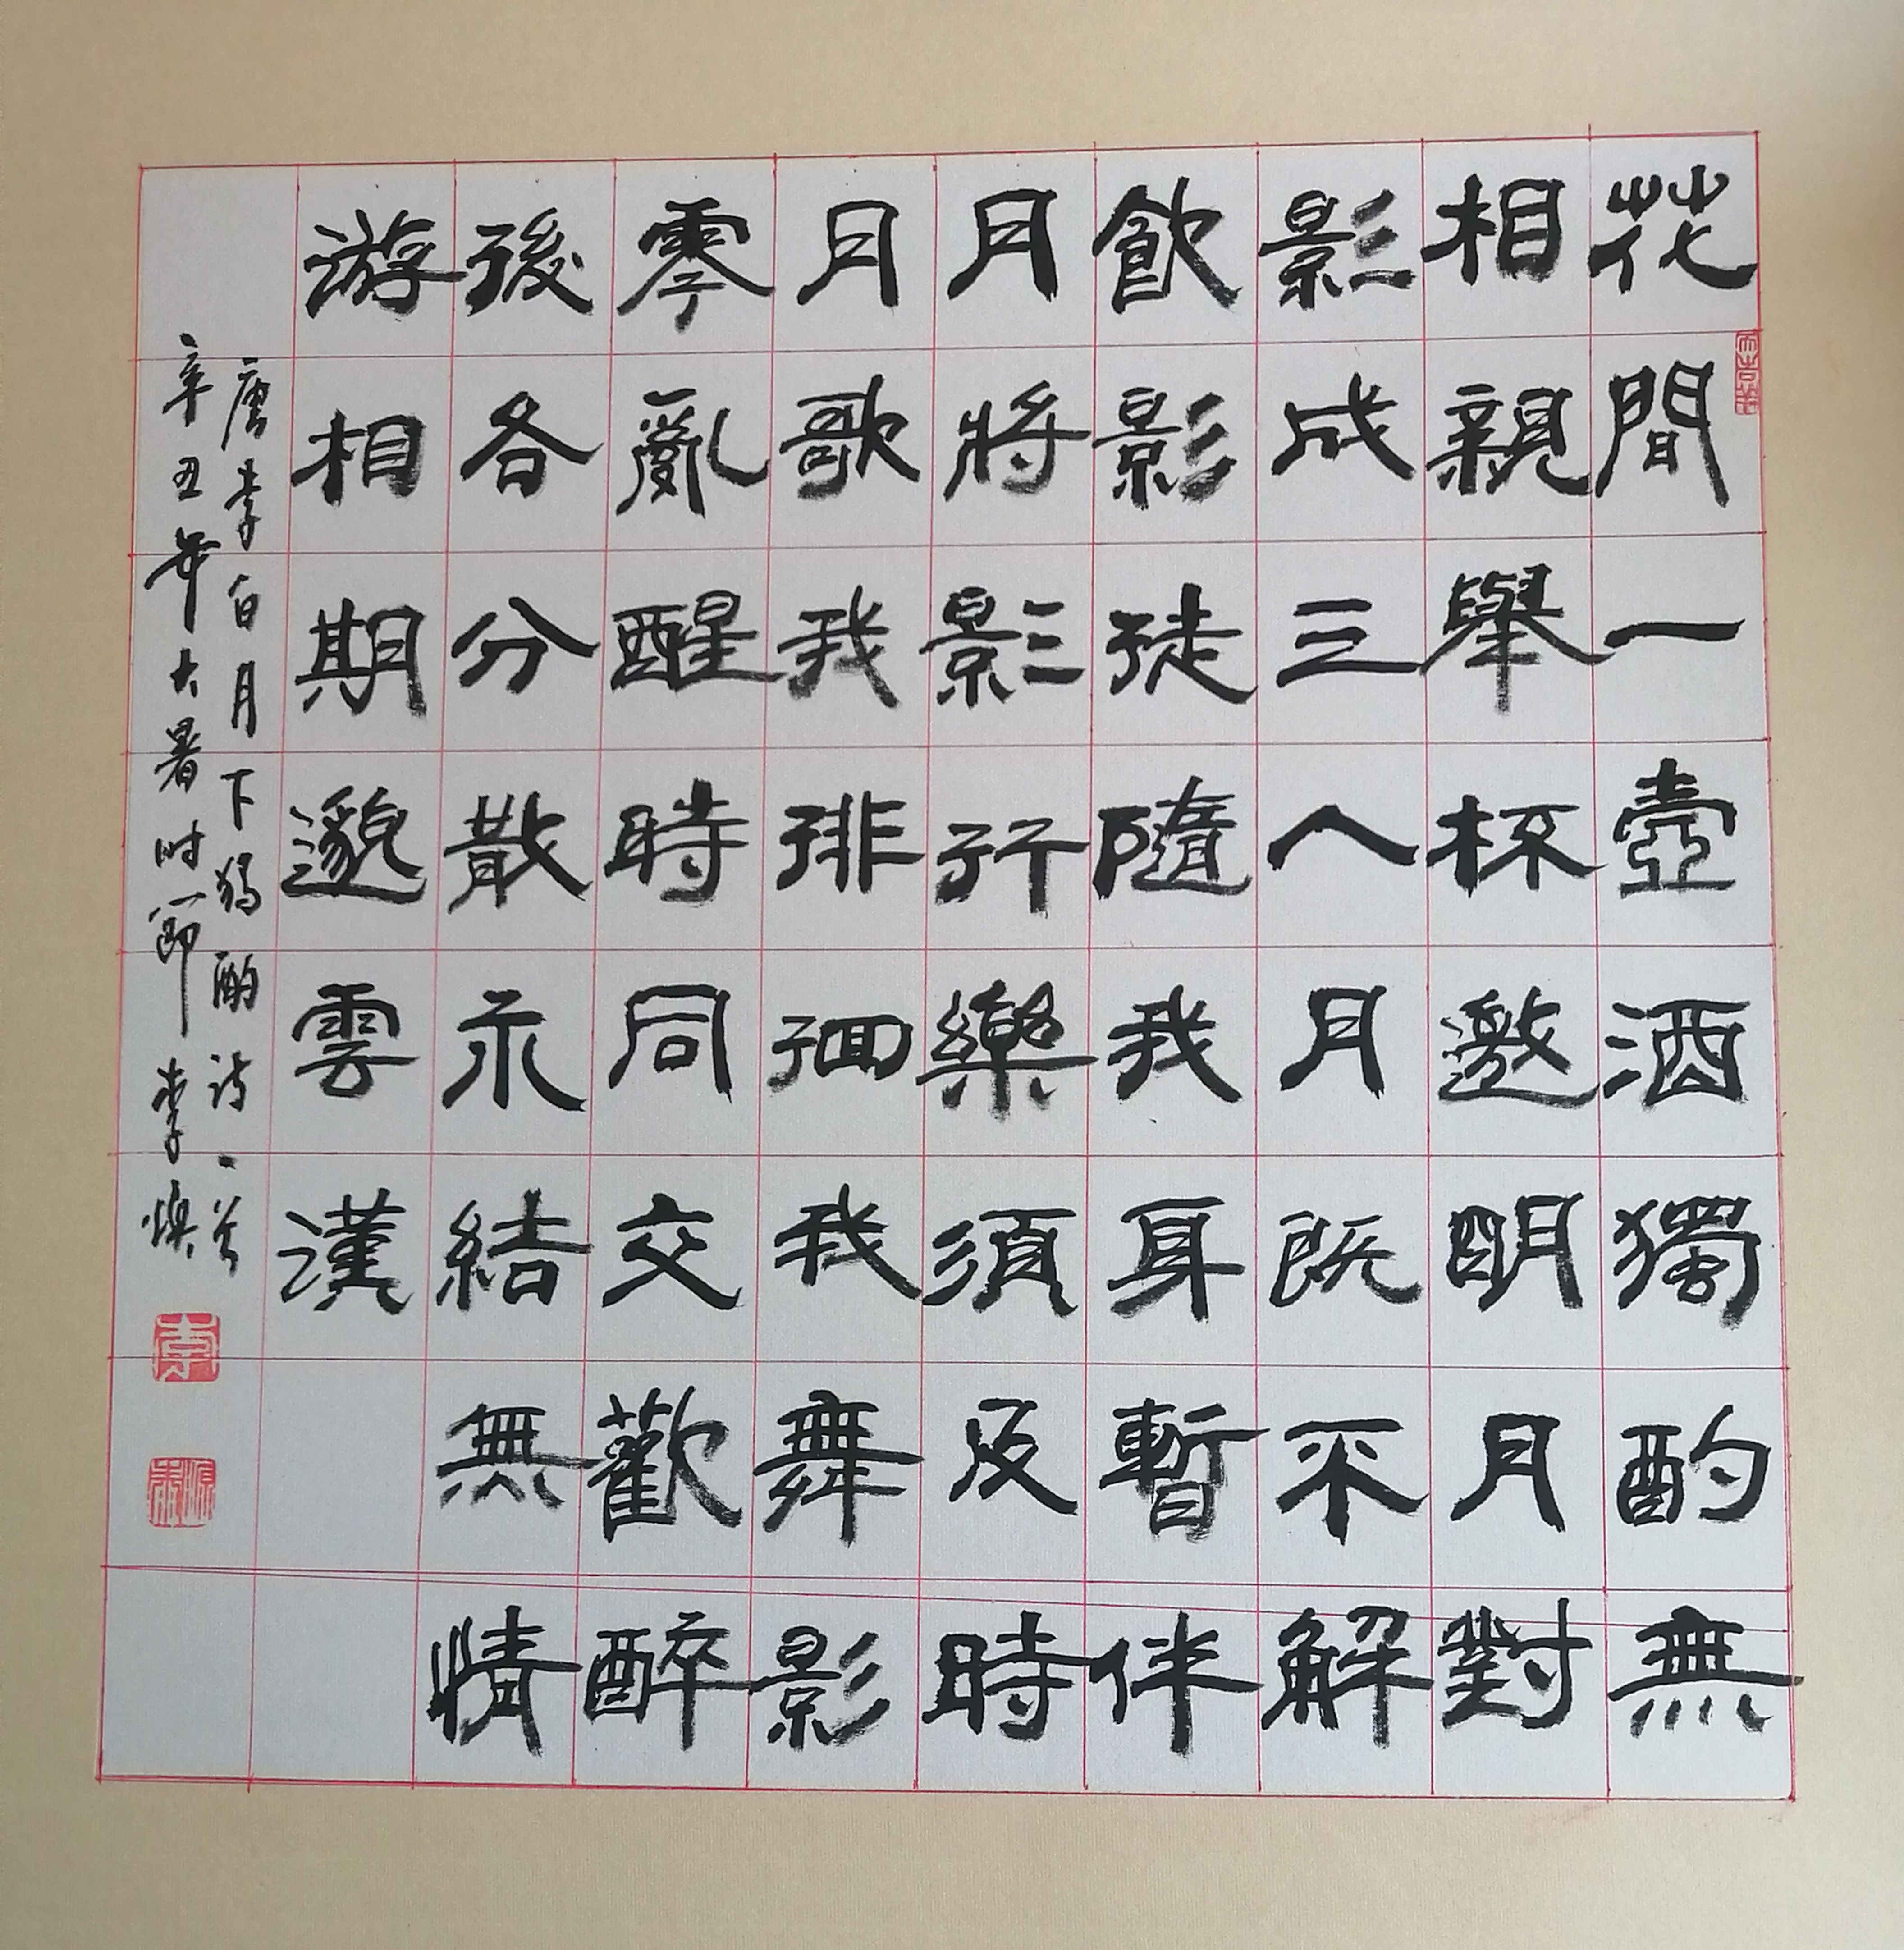 花間一壺酒獨酌無
相親舉杯邀明月對
影成三人月既不解
飲影徒隨我身暫伴
月將影行樂須及時
月歌我徘徊我舞影
零亂醒時同交歡醉
後各分散永結無情
游相期邈雲漢
唐李白月下獨酌诗一首
辛丑年大暑时節 李焕
李